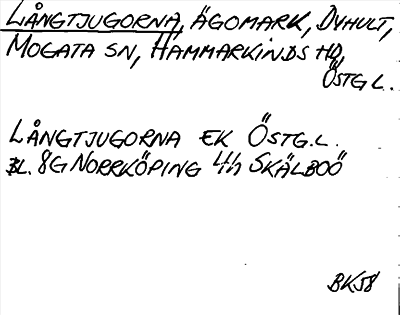 LÅNGTJUGORNA, ÄGOMARK, DVHULT,
MOGATA SN, HAMMARKINDS HD,
ÖSTG L.
LÅNGTJUGORNA EK ÖSTG.L.
BL. 8G NORRKÖPING 4h SKÄLBOÖ
BK58